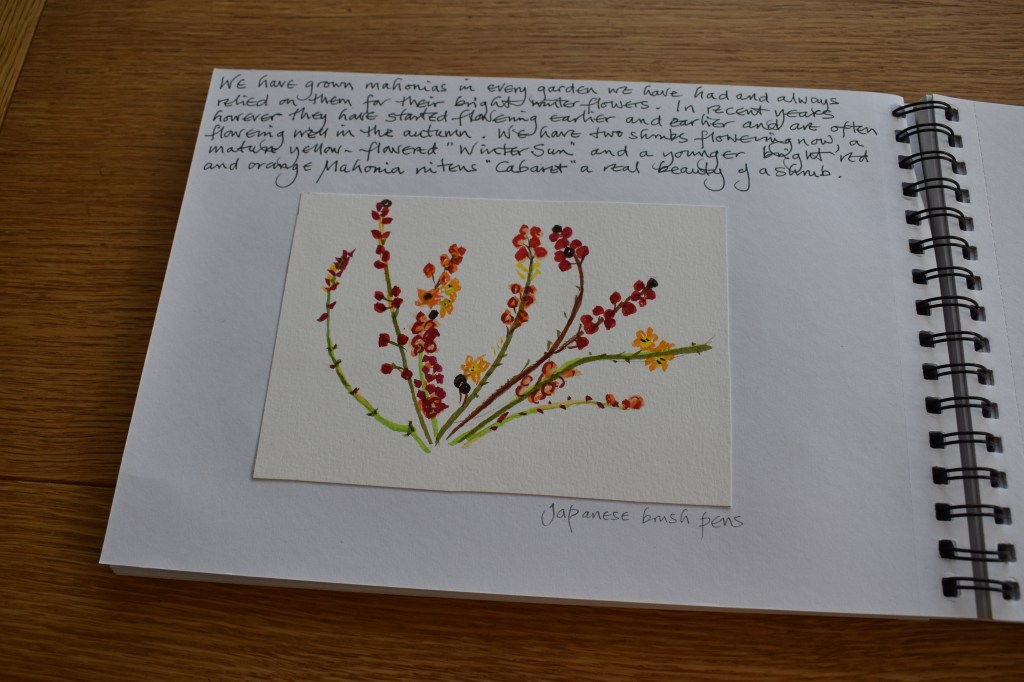 We have grown mahonias in every garden we have had and always
relied on them for their bright winter flowers. In recent years
however they have started flowering earlier and earlier and are often
flowering well in the autumn. We have two shrubs flowering now, a
mature yellow-flowered "Winter Sun" and a younger bright red
and orange Mahonia nitens "Cabaret" a real beauty of a shrub.
Japanese brush pens